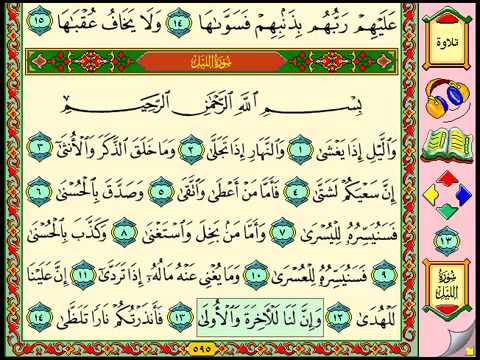 عَلَيْهِمْ رَبُّهُم بِذَنۢبِهِمْ فَسَوَّىٰهَا ١٤ وَلَا يَخَافُ عُقْبَٰهَا ١٥
سُورَةُ اللَّيْلِ
بِسْمِ اللَّهِ الرَّحْمَٰنِ الرَّحِيمِ
وَالَّيْلِ إِذَا يَغْشَىٰ ١ وَالنَّهَارِ إِذَا تَجَلَّىٰ ٢ وَمَا خَلَقَ الذَّكَرَ وَالْأُنثَىٰ ٣
إِنَّ سَعْيَكُمْ لَشَتَّىٰ ٤ فَأَمَّا مَنْ أَعْطَىٰ وَاتَّقَىٰ ٥ وَصَدَّقَ بِالْحُسْنَىٰ ٦
فَسَنُيَسِّرُهُ لِلْيُسْرَىٰ ٧ وَأَمَّا مَنۢ بَخِلَ وَاسْتَغْنَىٰ ٨ وَكَذَّبَ بِالْحُسْنَىٰ
٩ فَسَنُيَسِّرُهُ لِلْعُسْرَىٰ ١٠ وَمَا يُغْنِي عَنْهُ مَالُهُ إِذَا تَرَدَّىٰ ١١ إِنَّ عَلَيْنَا
لَلْهُدَىٰ ١٢ وَإِنَّ لَنَا لَلْآخِرَةَ وَالْأُولَىٰ ١٣ فَأَنذَرْتُكُمْ نَارًا تَلَظَّىٰ ١٤
٥٩٥
تلاوة
١٣
سُورَةُ اللَّيْلِ